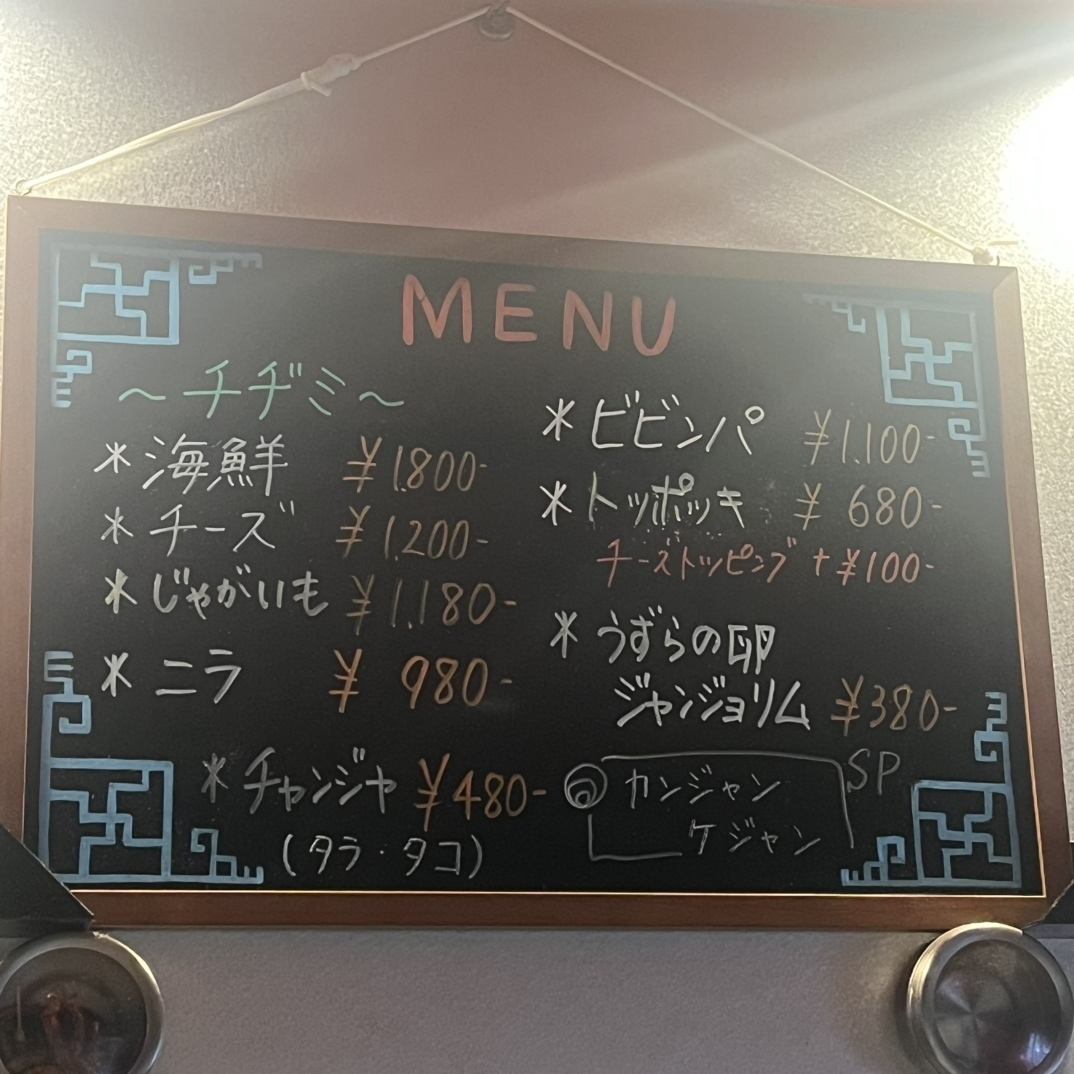 MENU
~チヂミ~
*海鮮 ¥1.800-
*チーズ ¥1.200-
*じゃがいも ¥1.180-
*ニラ ¥980-
*チャンジャ ¥480-
(タラ・タコ)
*ビビンパ ¥1.100-
*トッポッキ ¥680-
チーズトッピング +¥100-
*うずらの卵
ジャンジョリム ¥380-
カンジャン SP
ケジャン